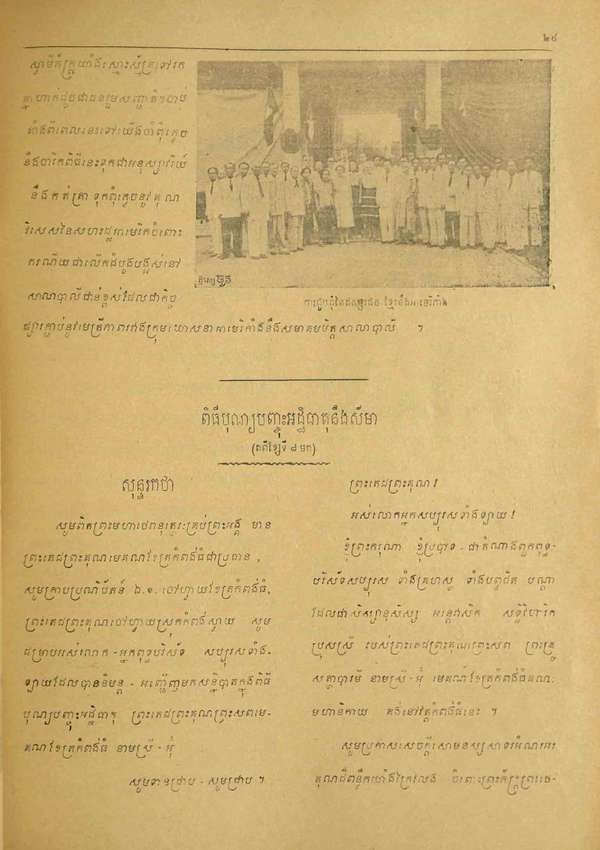 ២៨
ស្មាមិត័ក្រូយាំងស្មោះស្ម័គ្រទៅរក
គ្នាហាក់ដូចជាជនរួមសញ្ជាតិ។ចាប់
តាំងពីពេលនេះទៅយើងចាំពុំភ្លេច
នឹងចារិកពិធីនេះទុកជាអនុស្សាវរីយ៍
នឹងកត់ត្រា ទុកពុំភ្លេចនូវគុណ
វិសេសនៃសហរដ្ឋអាមេរិកចំពោះ
ករណីយជាលើកដំបូងបង្អស់នៅ
សាលាបាលីជាន់ខ្ពស់ដែលជាកិច្ច
ផ្សារភ្ជាប់នូវមេត្រីភាពរវាងក្រុមឃោសនាអាមេរិកាំងនឹងសមាគមមិត្តសាលាបាលី ។
ការជួបជុំនៃឥស្សរជន ខ្មែរនឹងអាមេរិកាំង
ពិធីបុណ្យបញ្ចុះអដ្ឋិធាតុនឹងសីមា
(តពីខ្សែទី ៨ មក)
សុន្ទរកថា
សូមពិតព្រះមហាថេរានុត្ថេរៈគ្រប់ព្រះអង្គ មាន
ព្រះតេជព្រះគុណមេគណខែត្រកំពង់ធំជាប្រធាន,
សូមក្រាបប្រណិប័តន៍ ឯ.ឧ. ចៅហ្វាយខែត្រកំពង់ធំ,
ព្រះតេជព្រះគុណចៅហ្វាយស្រុកកំពង់ស្វាយ សូម
ជម្រាបអស់លោក - អ្នកពុទ្ធបរិស័ទ សប្បុរសទាំង-
ឡាយដែលបាននិមន្ត - អញ្ជើញមកសន្និបាតក្នុងពិធី
បុណ្យបញ្ចុះអដ្ឋិធាតុ ព្រះតេជព្រះគុណព្រះសពមេ-
គណខែត្រកំពង់ធំ នាមស្រី - អ៊ុំ
សូមទានជ្រាប - សូមជ្រាប ។
ព្រះតេជព្រះគុណ!
អស់លោកអ្នកសប្បុរសទាំងឡាយ!
ខ្ញុំព្រះករុណា ខ្ញុំប្របាទ - ជាតំណាងពួកពុទ្ធ-
បរិស័ទសប្បុរស ទាំងគ្រហស្ថ ទាំងបព្វជិត បណ្តា
ដែលជាសិស្សានុសិស្ស អន្តេវាសិក សទ្ធិវិហារិក
ប្រុសស្រី របស់ព្រះតេជព្រះគុណព្រះសព ព្រះគ្រូ
សត្ថាបារមី នាមស្រី - អ៊ុំ មេគណខែត្រកំពង់ធំគណៈ
មហានិកាយ គង់នៅវត្តកំពង់ធំនេះ ។
សូមប្រកាសសេចក្តីសោមនស្សសាទរអំណរអរ
គុណដ៏ពន្លឹកយ៉ាងក្រៃលែង ចំពោះព្រះភ័ក្ត្រព្រះថេ-